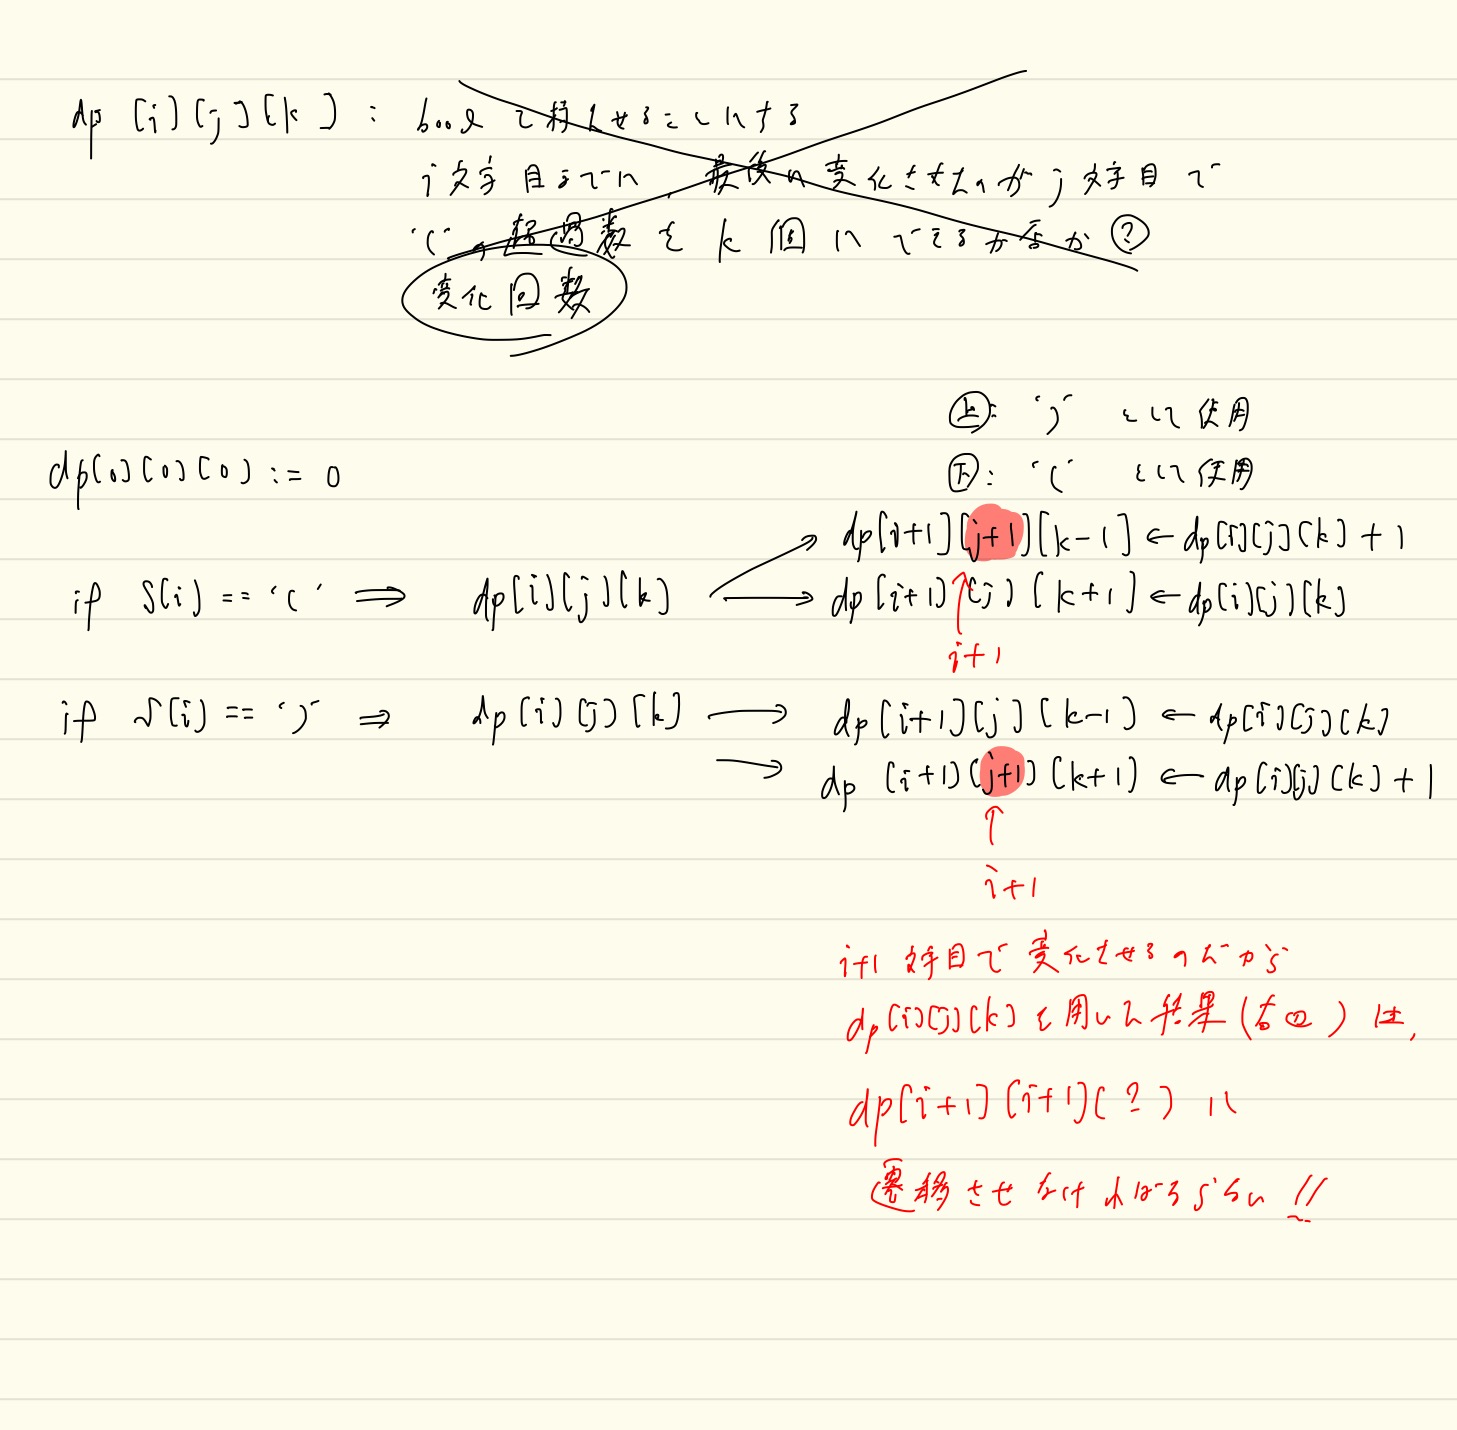 dp[i][j][k] : boolで持たせることにする
i文字目までに、最後に変化させたのがj文字目で
'('の超過数をk個にできるか否か?
変化回数
上: ')' として使用
下: '(' として使用
dp[0][0][0] := 0
dp[i+1][j+1][k-1] ← dp[i][j][k] + 1
if S[i] == '(' ⇒ dp[i][j][k] → dp[i+1][j][k+1] ← dp[i][j][k]
↑
i+1
if S[i] == ')' ⇒ dp[i][j][k] → dp[i+1][j][k-1] ← dp[i][j][k]
→ dp[i+1][j+1][k+1] ← dp[i][j][k] + 1
↑
i+1
i+1文字目で変化させるのだから
dp[i][j][k]を用いた結果(右辺)は,
dp[i+1][i+1][?]に
遷移させなければならない!!